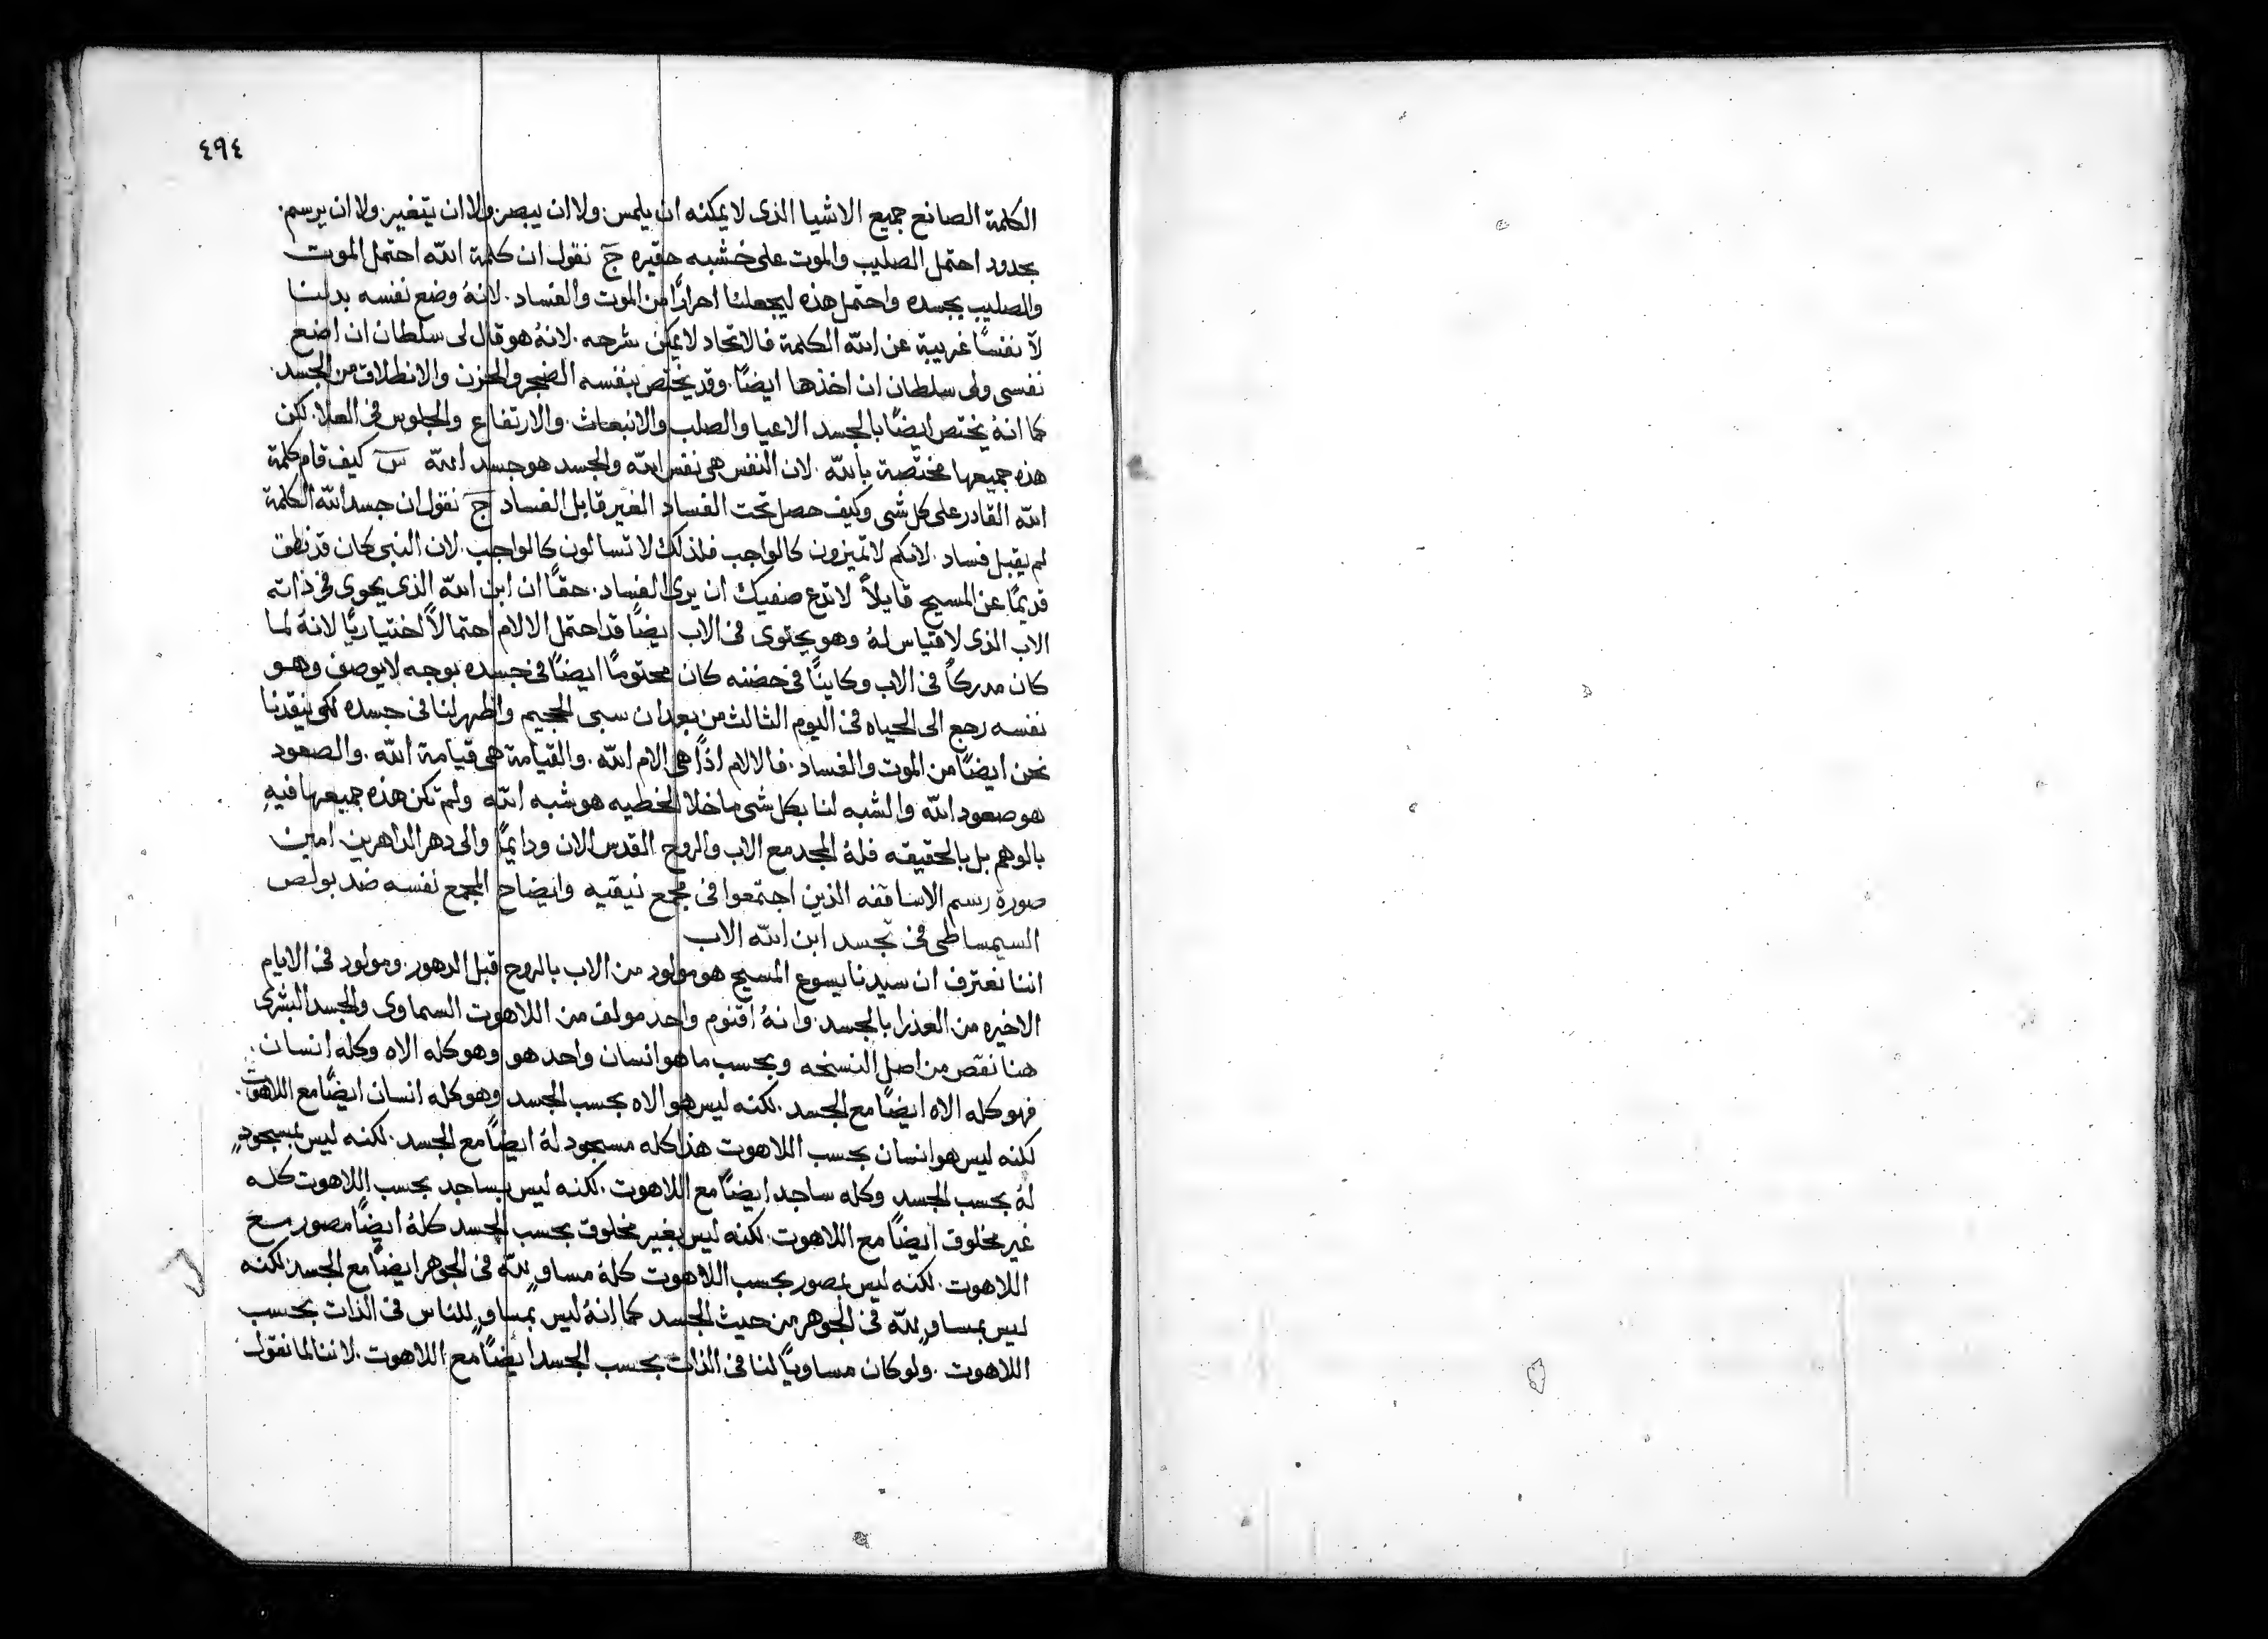 ٤٩٤
الكلمة الصانع جميع الاشيا الذى لا يمكنه ان يلمس. ولا ان يبصر ولا ان يتغير. ولا ان يرسم.
بحدود احتمل الصليب والموت على خشبه حقيره جَ نقول ان كلمة الله احتمل الموت
والصليب بجسده واحتمل هذه ليجعلنا احرارًا من الموت والفساد. لانهُ وضع نفسه بدلنا
لا نفسًا غريبة عن الله الكلمة فالاتحاد لا يمكن شرحه. لانهُ هو قال لى سلطان ان اضع
نفسى ولى سلطان ان اخذها ايضًا. وقد يختص بنفسه الضجر والحزن والانطلاق من الجسد.
كما انهُ يختص ايضًا بالجسد الاعيا والصلب والانبعاث. والارتفاع والجلوس فى العلا. لكن
هذه جميعها مختصة بالله. لان النفس هى نفس الله والجسد هو جسد الله سَ كيف قام كلمة
الله القادر على كل شى وكيف حصل تحت الفساد الغير قابل الفساد جَ نقول ان جسد الله الكلمة
لم يقبل فساد. لانكم لا تميزون كالواجب فلذلك لا تسالون كالواجب. لان النبى كان قد نطق
قديمًا عن المسيح قايلاً لا تدع صفيك ان يرى الفساد. حقًا ان ابن الله الذى يحوى فى ذاته
الاب الذى لا قياس لهُ وهو يحتوى فى الاب ايضًا قد احتمل الالام احتمالاً اختياريًا لانهُ لما
كان مدركاً فى الاب وكاينًا فى حضنه كان محتومًا ايضًا فى جسده بوجه لا يوصف وهو
نفسه رجع الى الحياه فى اليوم الثالث من بعد ان سبى الجحيم واظهر لنا فى جسده لكى ينقدنا
نحن ايضًا من الموت والفساد. فالالام اذاً هى الام الله. والقيامة هى قيامة الله. والصعود
هو صعود الله والشبه لنا بكل شى ما خلا الخطيه هو شبه الله ولم تكن هذه جميعها فيهِ
بالوهم بل بالحقيقه فلهُ المجد مع الاب والروح القدس الان ودايمًا والى دهر الداهرين امين
صورة رسم الاساقفه الذين اجتمعوا فى مجمع نيقيه وايضاح المجمع نفسه ضد بولص
السيمساطى فى تجسد ابن الله الاب
اننا نعترف ان سيدنا يسوع المسيح هو مولود من الاب بالروح قبل الدهور. ومولود فى الايام
الاخيره من العذرا بالجسد. وانهُ اقنوم واحد مولف من اللاهوت السماوى والجسد البشرى
هنا نقص من اصل النسخه وبحسب ما هو انسان واحد هو وهو كله الاه وكله انسان.
فهو كله الاه ايضًا مع الجسد. لكنه ليس هو الاه بحسب الجسد وهو كله انسان ايضًا مع اللاهوت.
لكنه ليس هو انسان بحسب اللاهوت هذا كله مسجود لهُ ايضًا مع الجسد. لكنه ليس بمسجودٍ
لهُ بحسب الجسد وكله ساجد ايضًا مع اللاهوت. لكنه ليس بساجد بحسب اللاهوت كله
غير مخلوق ايضًا مع اللاهوت. لكنه ليس بغير مخلوق بحسب الجسد كلهُ ايضًا مصور مع
اللاهوت. لكنه ليس بمصور بحسب اللاهوت كلهُ مساوٍ لله فى الجوهر ايضًا مع الجسد لكنه
ليس بمساوٍ لله فى الجوهر من حيث الجسد كما انهُ ليس بمساوٍ للناس فى الذات بحسب
اللاهوت. ولو كان مساويًا لنا فى الذات بحسب الجسد ايضًا مع اللاهوت. لاننا لما نقول